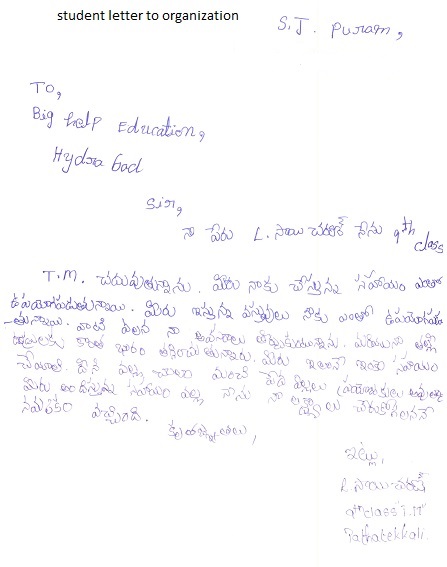 student letter to organization
S.T. Puram,
To,
Big help Education,
Hydra bad
Sir,
నా పేరు L. సాయి చరణ్ నేను 9th class
T.M. చదువుతున్నాను. మీరు నాకు చేస్తున్న సహాయం ఎంతో
ఉపయోగపడుతున్నాయి. మీరు ఇస్తున్న వస్తువులు నాకు ఎంతో ఉపయోగపడు
-తున్నాయి. వాటి వలన నా అవసరాలు తీర్చుకుంటున్నాను. మరియు నా తల్లి
కొంత భారం తగ్గించుతున్నారు. మీరు ఇలానే ఇంకా సహాయం
చేయాలి. దీని వల్ల చాలా మంది పేద పిల్లలు
మీరు అందిస్తున్న సహాయం వల్ల నేను నా లక్ష్యాలు
నమ్మకం వచ్చింది.
కృతజ్ఞతలు,
ఇట్లు,
L. సాయి చరణ్
9th class "T.M"
Pathatekkali.